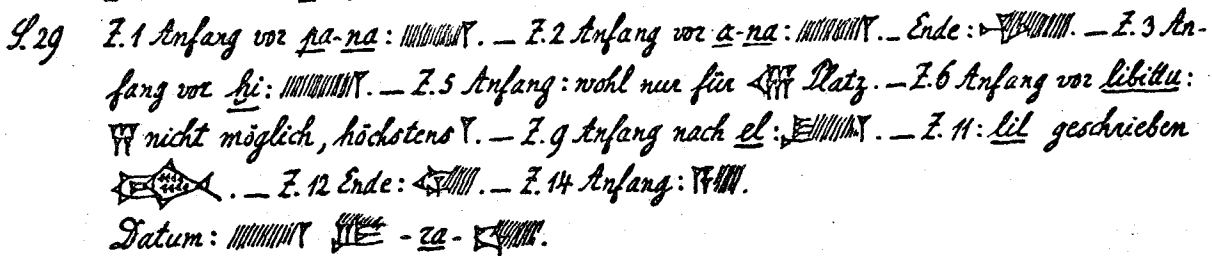 S. 29 Z. 1 Anfang vor pa-na: . — Z. 2 Anfang vor a-na: . — Ende: . — Z. 3 An-
fang vor hi: . — Z. 5 Anfang: wohl nur für Platz. — Z. 6 Anfang vor libittu:
nicht möglich, höchstens 𒁹. — Z. 9 Anfang nach el: . — Z. 11: lil geschrieben
. — Z. 12 Ende: . — Z. 14 Anfang: .
Datum: - za - .